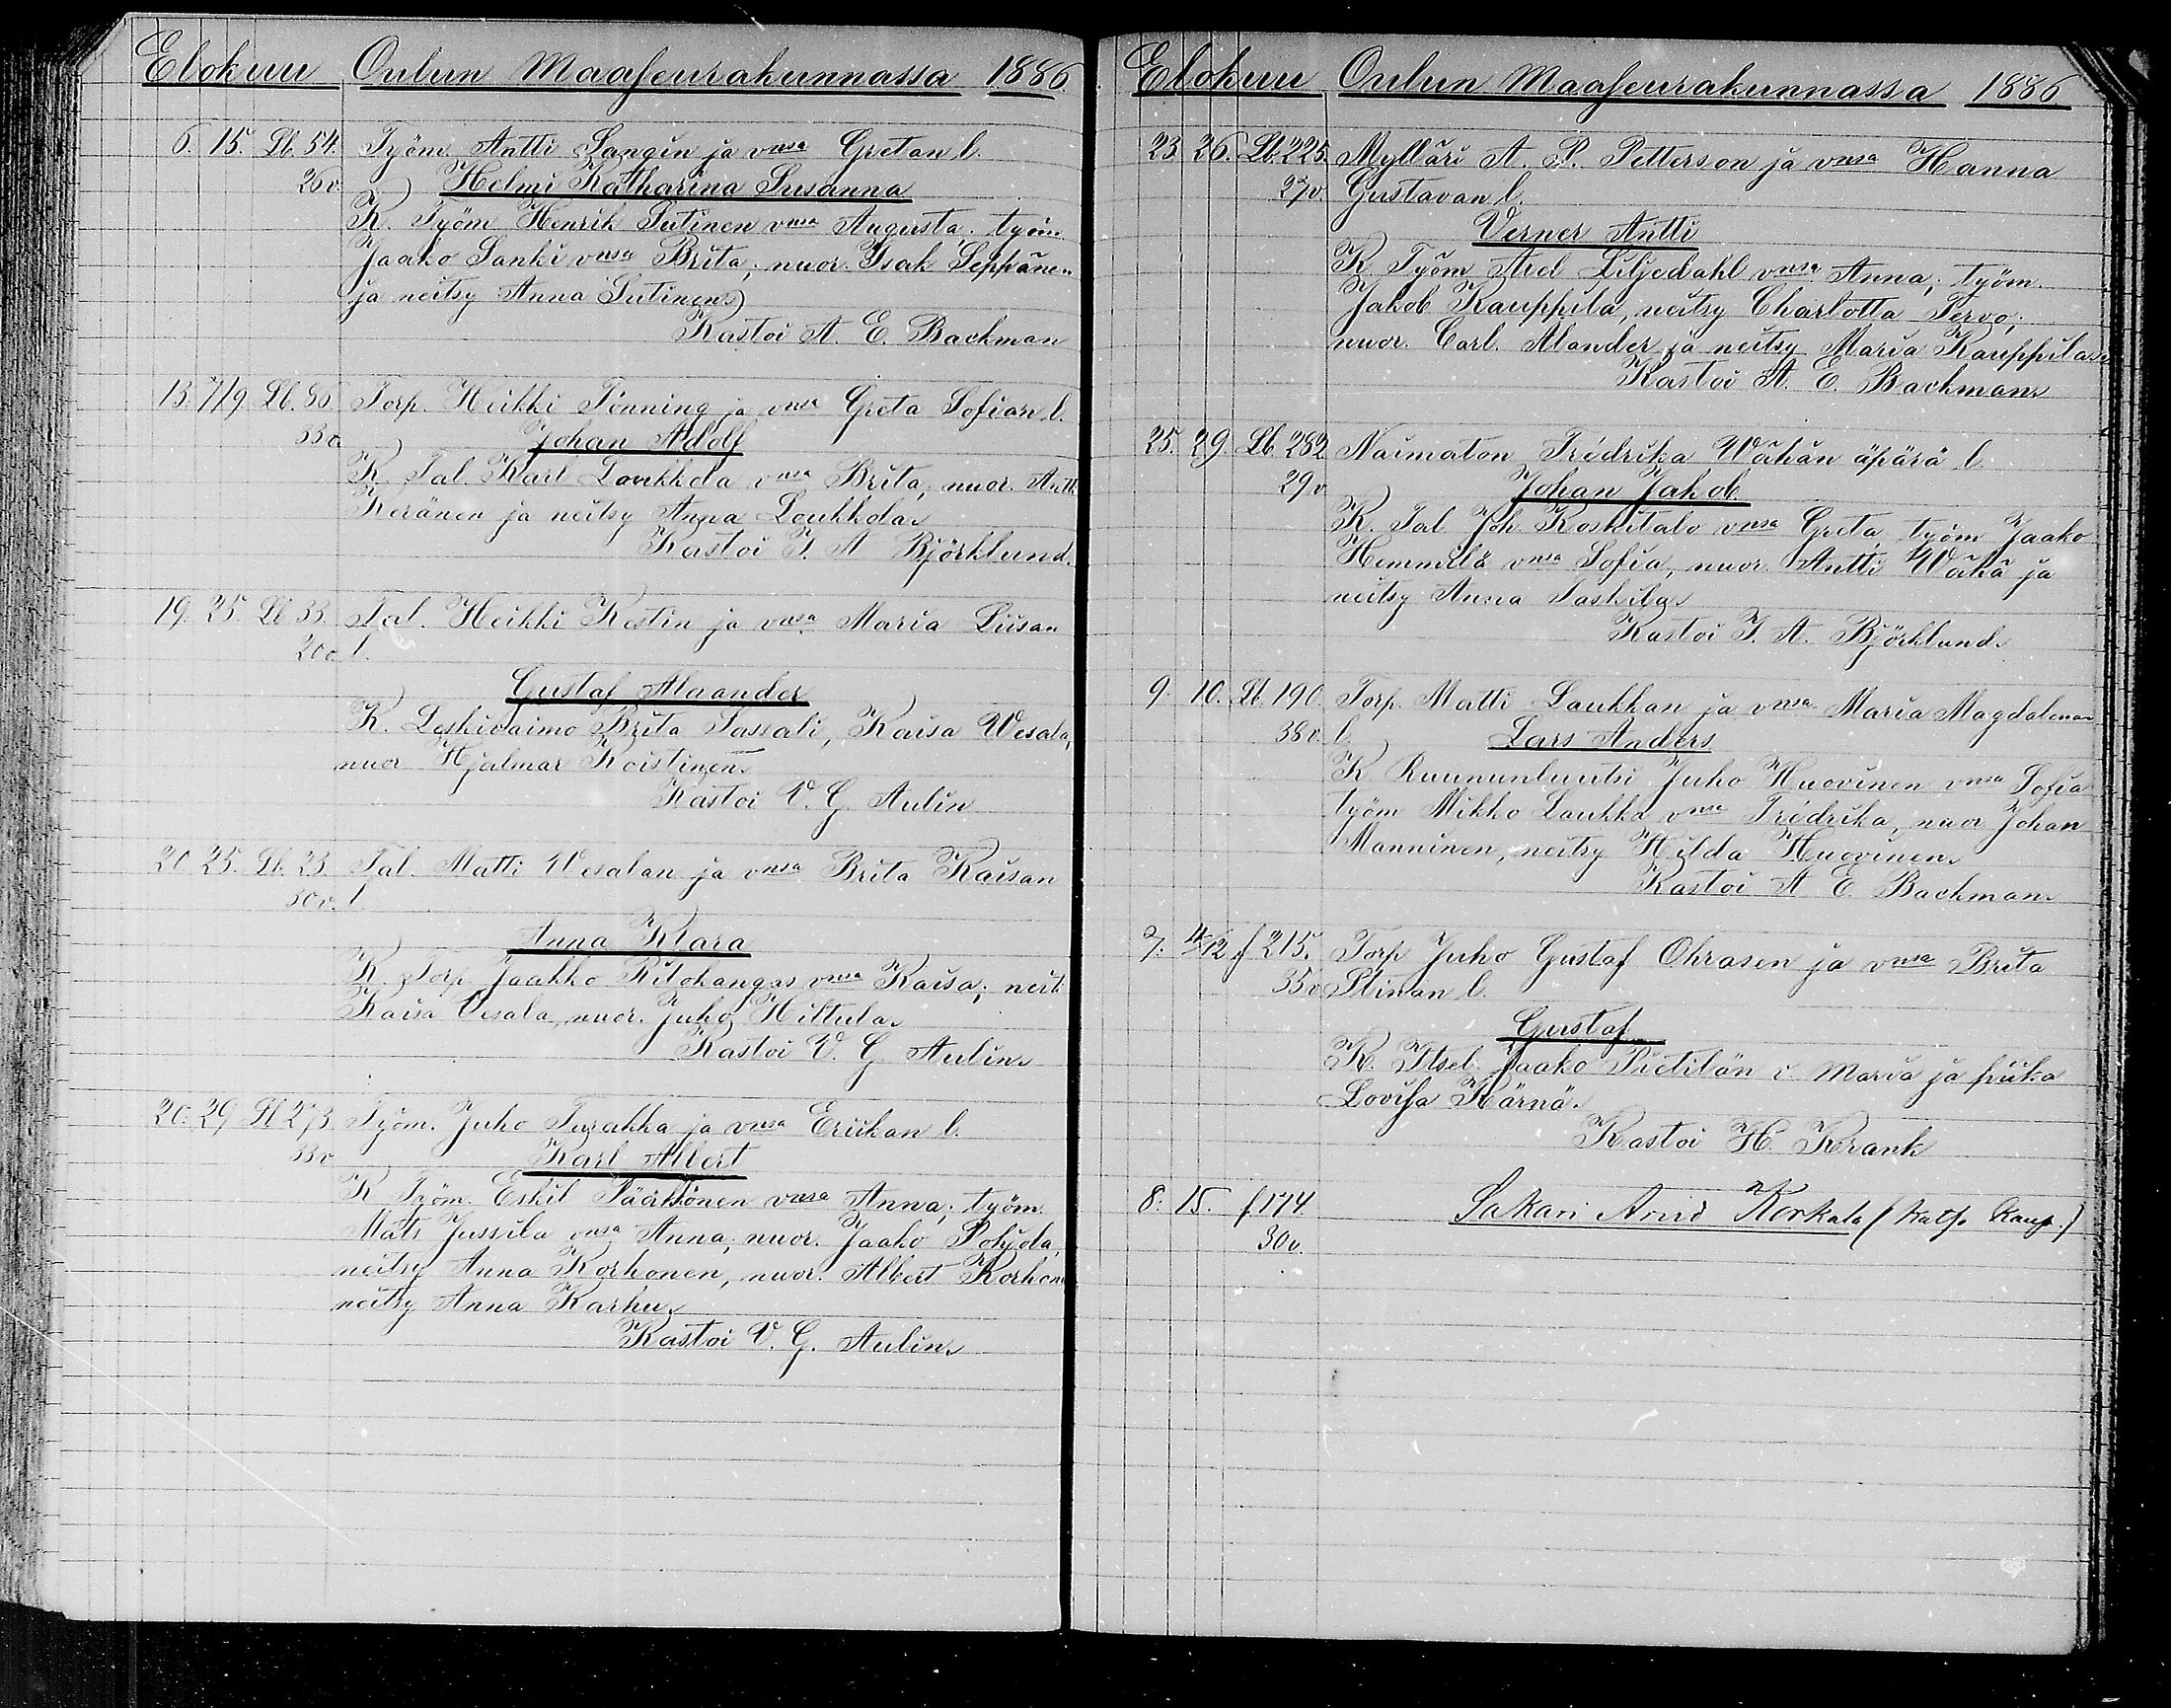 Elokuu Oulun Maaseurakunnassa 1886.
6. 15. Lb. 54. Työm. Antti Sangin ja vmsa Gretan l.
26v. Helmi Katharina Susanna
K. Työm Henrik Sutinen vmsa Augusta; työm.
Jaako Sanki vmsa Brita; nuor. Isak Seppänen
ja neitsy Anna Sutinen.
Kastoi A. E. Backman
13. 7/9 Lb. 86 Torp. Heikki Tönning ja vmsa Greta Sofian l.
33v. Johan Adolf
K. Tal. Karl Loukkola vmsa Brita; nuor. Antti
Keränen ja neitsy Anna Loukkola.
Kastoi J. A Björklund.
19. 25. Lb 33. Tal. Heikki Kestin ja vmsa Maria Liisan
20v l.
Gustaf Alexander
K. Leskivaimo Brita Sassali, Kaisa Wesala,
nuor Hjalmar Koistinen.
Kastoi V. G. Aulin
20 25. Lb. 23. Tal. Matti Wesalan ja vmsa Brita Kaisan
30v. l.
Anna Klara
K. Torp. Jaakko Ritokangas vmsa Kaisa; neit.
Kaisa Vesala, nuor. Juho Hiltula.
Kastoi V. G. Aulin.
20. 29 Lb 273. Työm. Juho Turakka ja vmsa Eriikan l.
33v Karl Albert
K Työm. Eskil Pääkkönen vmsa Anna; työm.
Mats Jussila vmsa Anna; nuor. Jaako Pohjola,
neitsy Anna Korhonen, nuor. Albert Korhonen
neitsy Anna Karhu.
Kastoi V. G. Aulin.
Elokuu Oulun Maaseurakunnassa 1886
23 26. Lb. 225. Mylläri A. P. Petterson ja vmsa Hanna
27v. Gustavan l.
Verner Antti
K. Työm Axel Liljedahl vmsa Anna; työm.
Jakob Kauppila, neitsy Charlotta Tervo;
nuor. Carl. Alander ja neitsy Maria Kauppila.
Kastoi A. E. Backman.
25. 29. Lb. 282 Naimaton Fredrika Wähän äpärä l.
29v Johan Jakob
K. Tal Joh. Koskitalo vmsa Greta, työm Jaako
Hemmilä vmsa Sofia, nuor Antti Wähä ja
neitsy Anna Taskila.
Kastoi J. A. Björklund.
9. 10. Lb. 190. Torp. Matti Laukkan ja vmsa Maria Magdalenan
38v. l. Lars Anders
K Ruununluutsi Juho Huovinen vmsa Sofia
työm Mikko Laukka vmsa Fredrika, nuor Johan
Manninen, neitsy Hilda Huovinen.
Kastoi A E. Backman.
7. 4/12 f 215. Torp Juho Gustaf Ohrasen ja vmsa Brita
35v Stinan l.
Gustaf
K. Itsel. Jaako Pietilän v. Maria ja piika
Lovisa Kärnä.
Kastoi H. Krank
8. 15. f. 174. Sakari Arvid Korkala (kats. Kaup.)
30v.